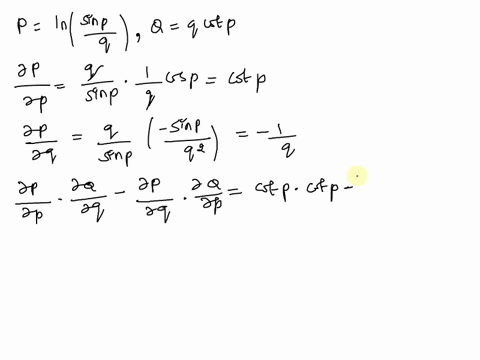 P = ln(sinp/q), Q = q cotp
∂P/∂p = q/sinp · 1/q cosp = cotp
∂P/∂q = q/sinp (-sinp/q²) = -1/q
∂P/∂p · ∂Q/∂q - ∂P/∂q · ∂Q/∂p = cotp · cotp -